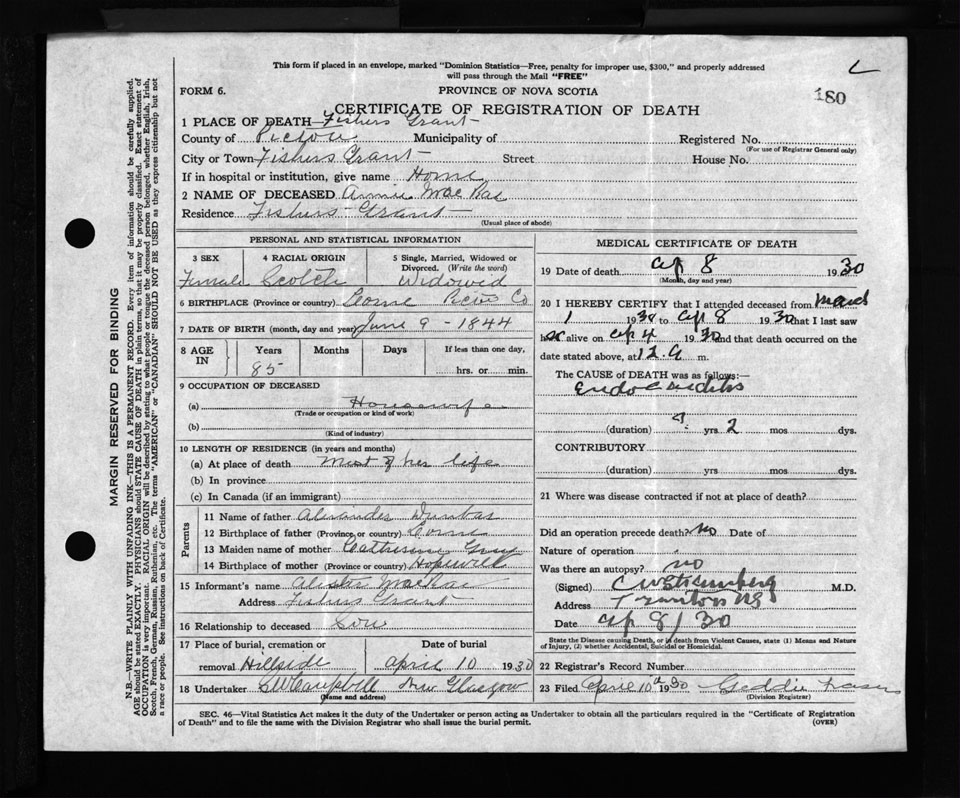 This form if placed in an envelope, marked "Dominion Statistics—Free, penalty for improper use, $300," and properly addressed
will pass through the Mail "FREE"
FORM 6.
PROVINCE OF NOVA SCOTIA
180
CERTIFICATE OF REGISTRATION OF DEATH
1 PLACE OF DEATH Fishers Grant
County of Pictou Municipality of Registered No.
(For use of Registrar General only)
City or Town Fishers Grant Street House No.
If in hospital or institution, give name Home
2 NAME OF DECEASED Annie MacRae
Residence Fishers Grant
(Usual place of abode)
PERSONAL AND STATISTICAL INFORMATION
3 SEX 4 RACIAL ORIGIN 5 Single, Married, Widowed or
Divorced. (Write the word)
Female Scotch Widowed
6 BIRTHPLACE (Province or country) Co
7 DATE OF BIRTH (month, day and year) June 9 - 1844
8 AGE IN Years Months Days If less than one day,
85 hrs. or min.
9 OCCUPATION OF DECEASED
(a) Housewife
(Trade or occupation or kind of work)
(b)
(Kind of industry)
10 LENGTH OF RESIDENCE (in years and months)
(a) At place of death most of her life
(b) In province
(c) In Canada (if an immigrant)
Parents
11 Name of father Alexander Dunbar
12 Birthplace of father (Province or country)
13 Maiden name of mother Catherine Gray
14 Birthplace of mother (Province or country) Hopewell
15 Informant's name MacRae
Address Fishers Grant
16 Relationship to deceased Son
17 Place of burial, cremation or Date of burial
removal Hillside April 10 1930
18 Undertaker SWCampbell New Glasgow
(Name and address)
MEDICAL CERTIFICATE OF DEATH
19 Date of death Ap 8 1930
(Month, day and year)
20 I HEREBY CERTIFY that I attended deceased from March
1 1930 to Ap 8 1930 that I last saw
h alive on Ap 4 1930 and that death occurred on the
date stated above, at 12.a m.
The CAUSE of DEATH was as follows:—
Endocarditis
(duration) ? yrs 2 mos dys.
CONTRIBUTORY
(duration) yrs mos dys.
21 Where was disease contracted if not at place of death?
Did an operation precede death? no Date of
Nature of operation
Was there an autopsy? no
(Signed) M.D.
Address Trenton NS
Date Ap 8/30
State the Disease causing Death, or in death from Violent Causes, state (1) Means and Nature
of Injury, (2) whether Accidental, Suicidal or Homicidal.
22 Registrar's Record Number
23 Filed April 10th 1930 Geddie Fraser
(Division Registrar)
SEC. 46—Vital Statistics Act makes it the duty of the Undertaker or person acting as Undertaker to obtain all the particulars required in the "Certificate of Registration
of Death" and to file the same with the Division Registrar who shall issue the burial permit.
(OVER)
MARGIN RESERVED FOR BINDING
N.B.—WRITE PLAINLY WITH UNFADING INK—THIS IS A PERMANENT RECORD. Every item of information should be carefully supplied.
AGE should be stated EXACTLY. PHYSICIANS should STATE CAUSE OF DEATH in plain terms, so that it may be properly classified. Exact statement of
OCCUPATION is very important. RACIAL ORIGIN will be described by stating to what people or tongue the deceased person belonged, whether English, Irish,
Scotch, French, German, Russian, Ruthenian, etc. The terms "AMERICAN" or "CANADIAN" SHOULD NOT BE USED as they express citizenship but not
a race or people. See instructions on back of Certificate.